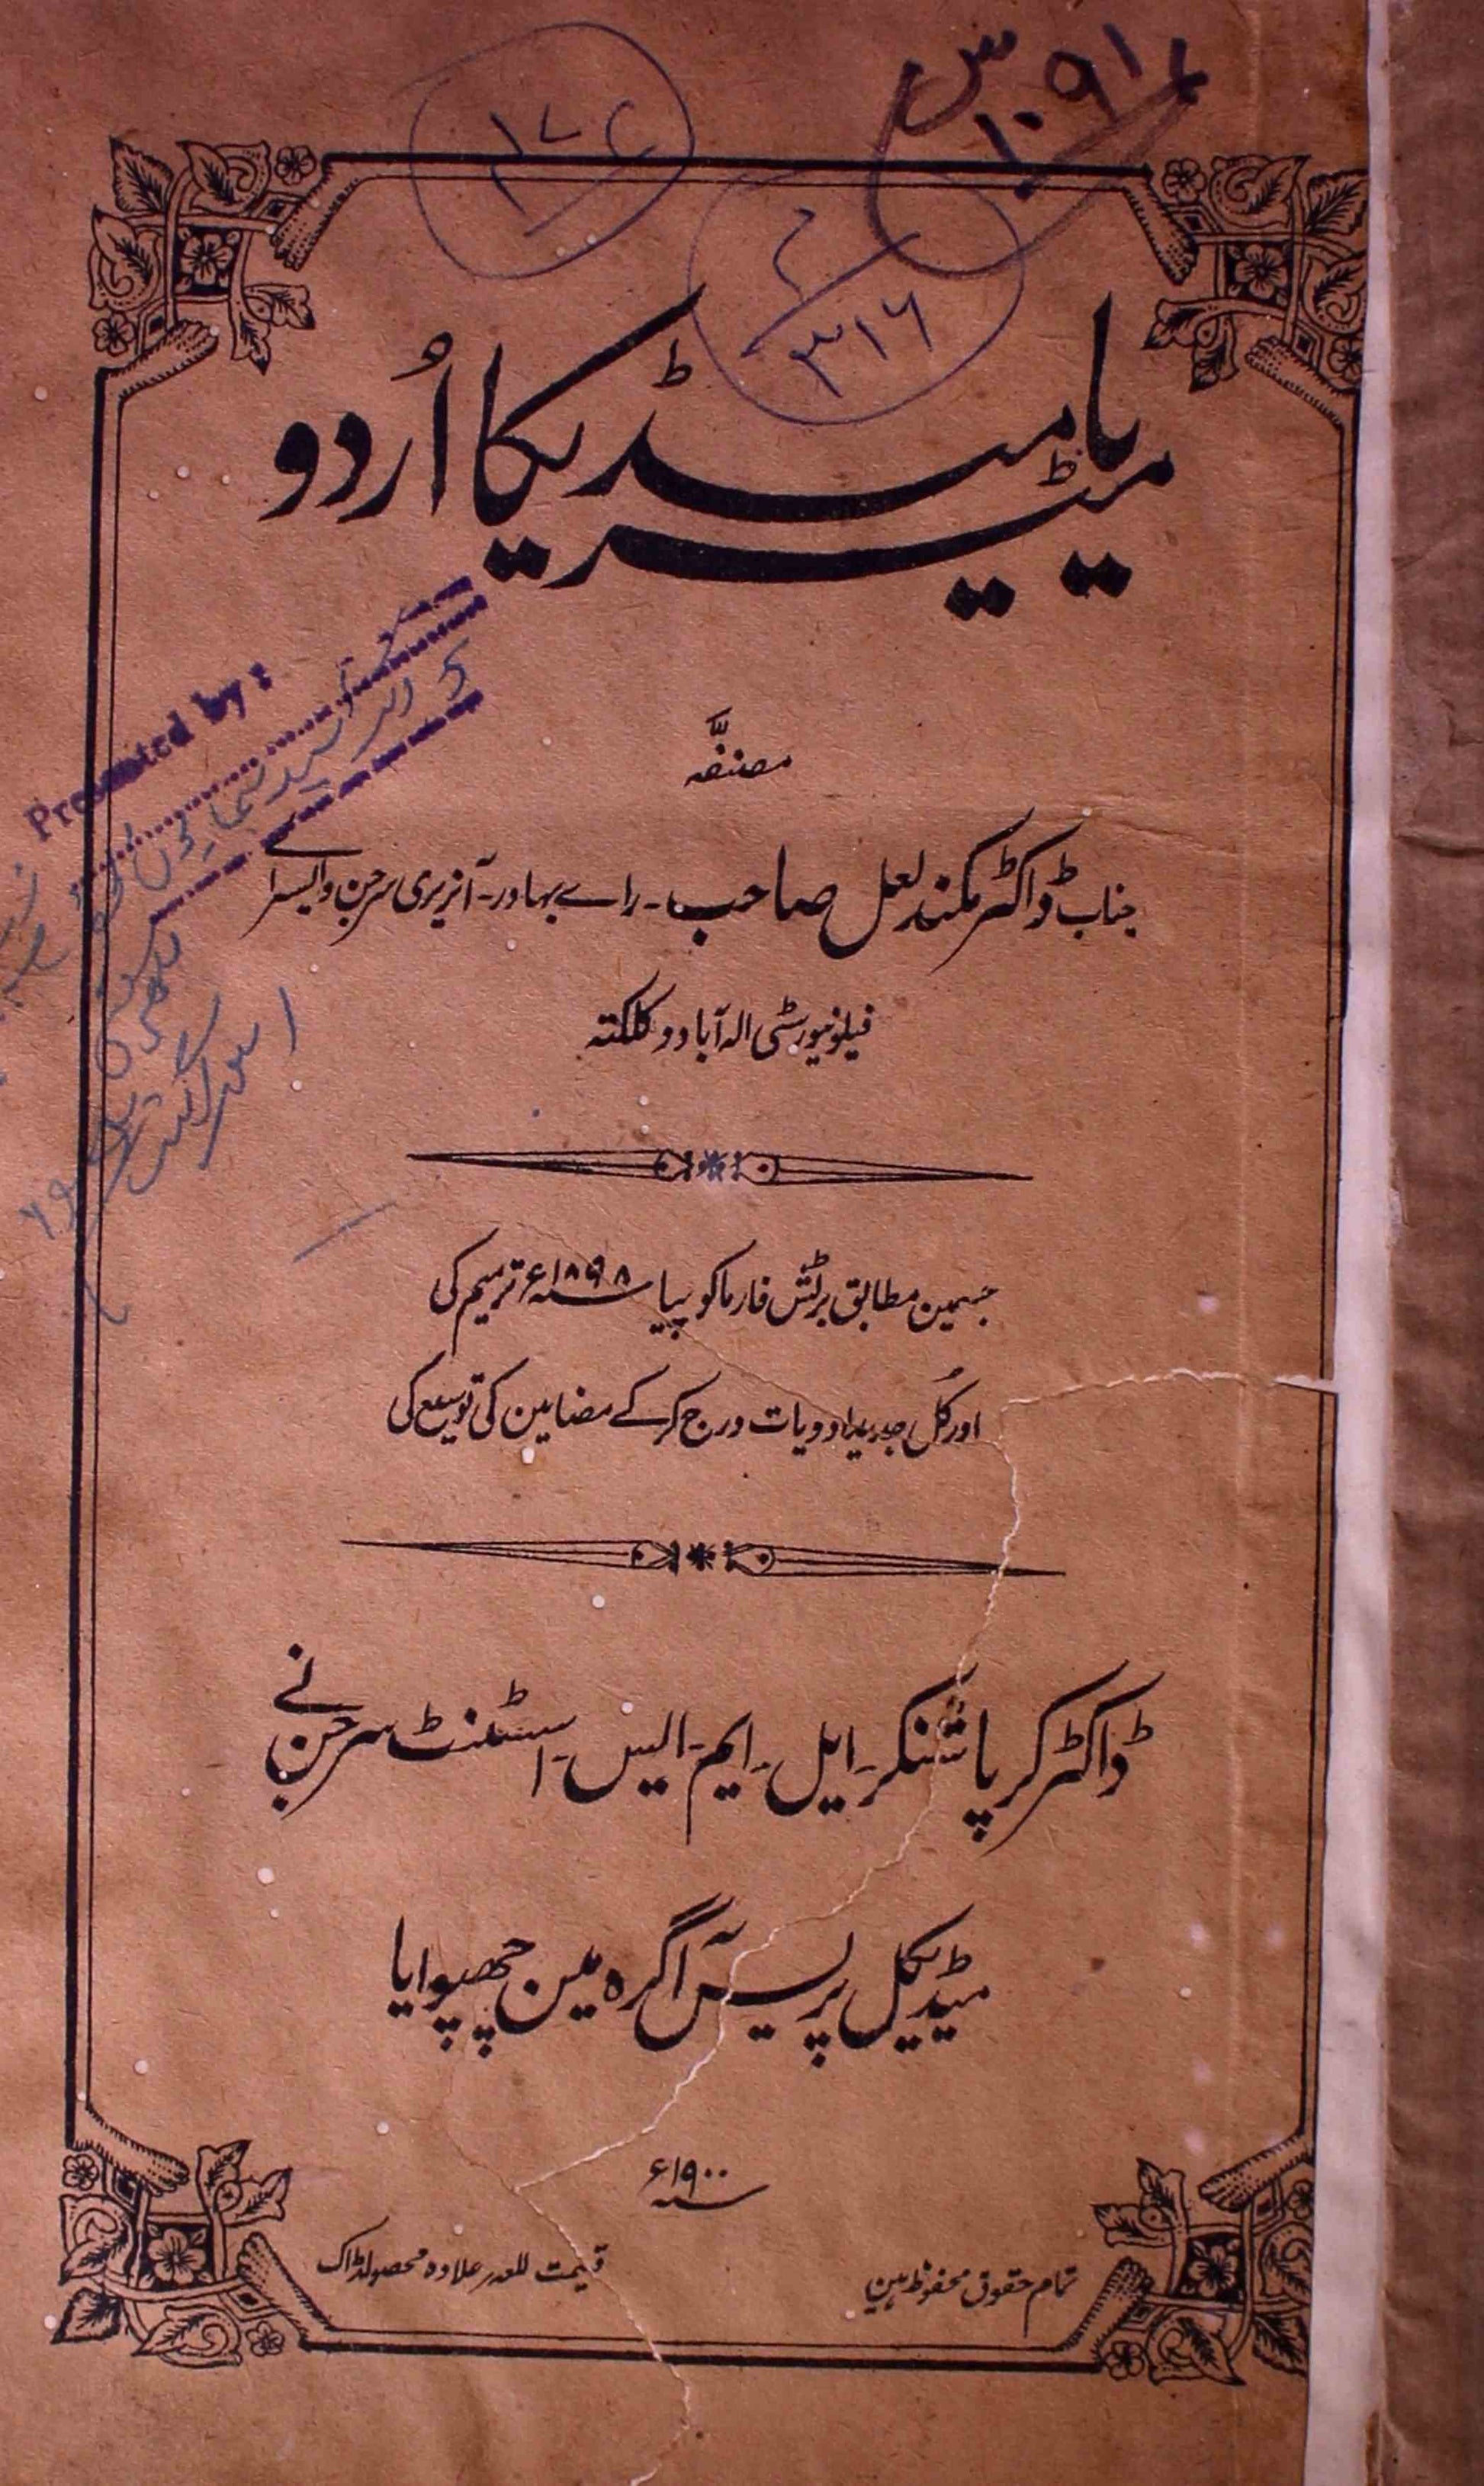 ۱۷۲
۳۱۶
میٹیریا میڈیکا اُردو
Presented by:
مصنفہٗ
جناب ڈاکٹر مکند لعل صاحب۔ راے بہادر۔ آنریری سرجن وایسراے
فیلو نیورسٹی الہ آباد و کلکتہ
جسمین مطابق برٹش فارماکوپیا سنہ ۱۸۹۸ء ترمیم کی
اور کُل جدید ادویات درج کرکے مضامین کی توسیع کی
ڈاکٹر کرپا شنکر۔ ایل۔ ایم۔ ایس۔ اسسٹنٹ سرجن نے
میڈیکل پریس آگرہ مین چھپوایا
سنہ ۱۹۰۰ء
تمام حقوق محفوظ ہین
قیمت للعہ علاوہ محصولڈاک